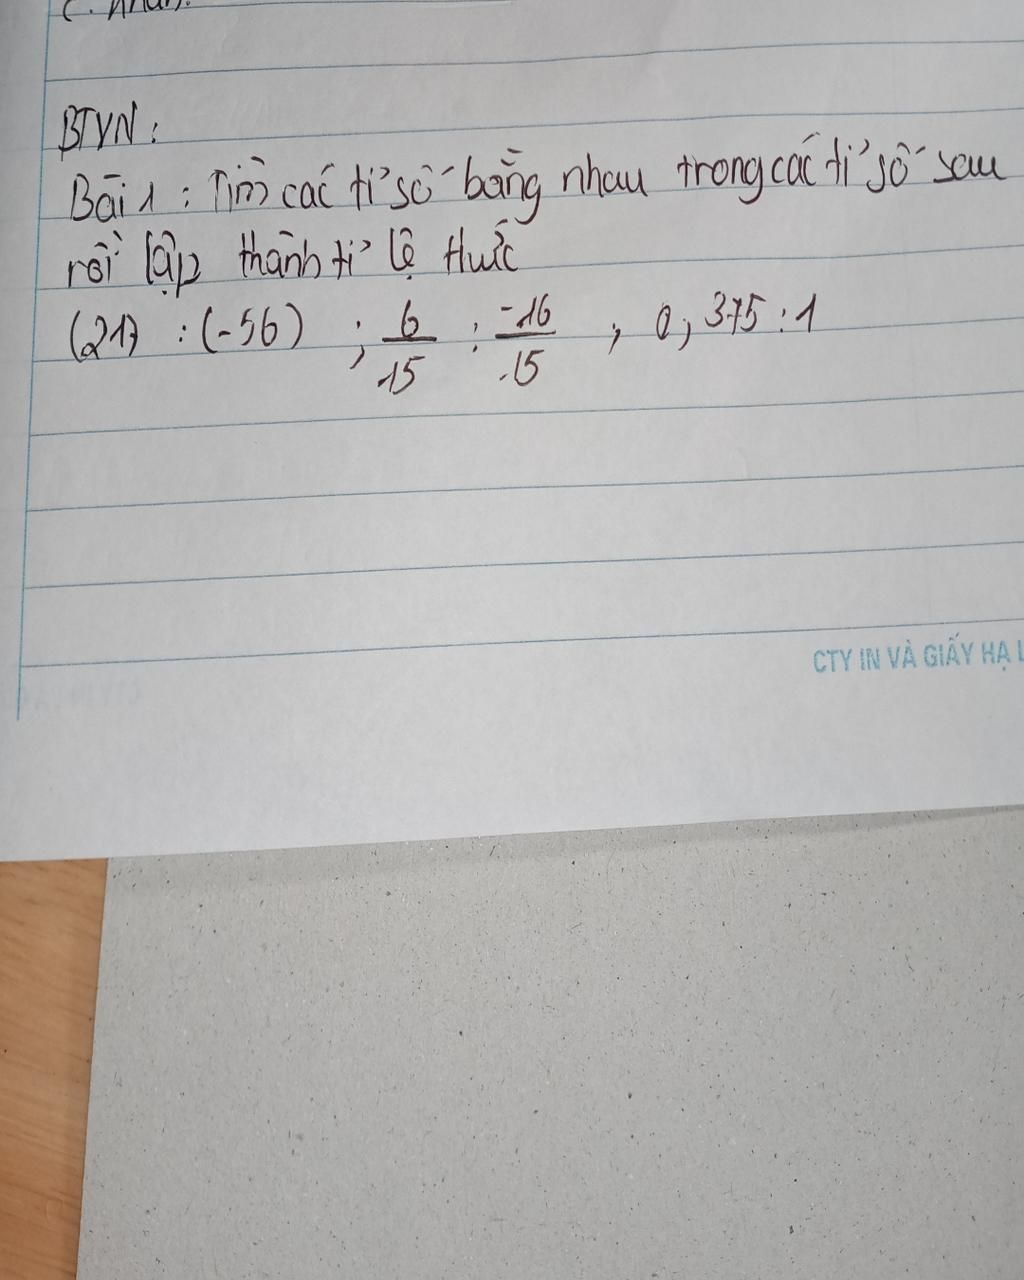 BTVN:
Bài 1 : Tìm các tỉ số bằng nhau trong các tỉ số sau
rồi lập thành tỉ lệ thức
(21) : (-56) ; 6/15 : -16/15 ; 0,375 : 1
CTY IN VÀ GIẤY HẠ L